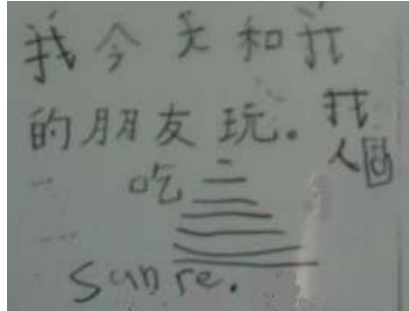 我今天和我
的朋友玩。我
人回
吃
sunre.